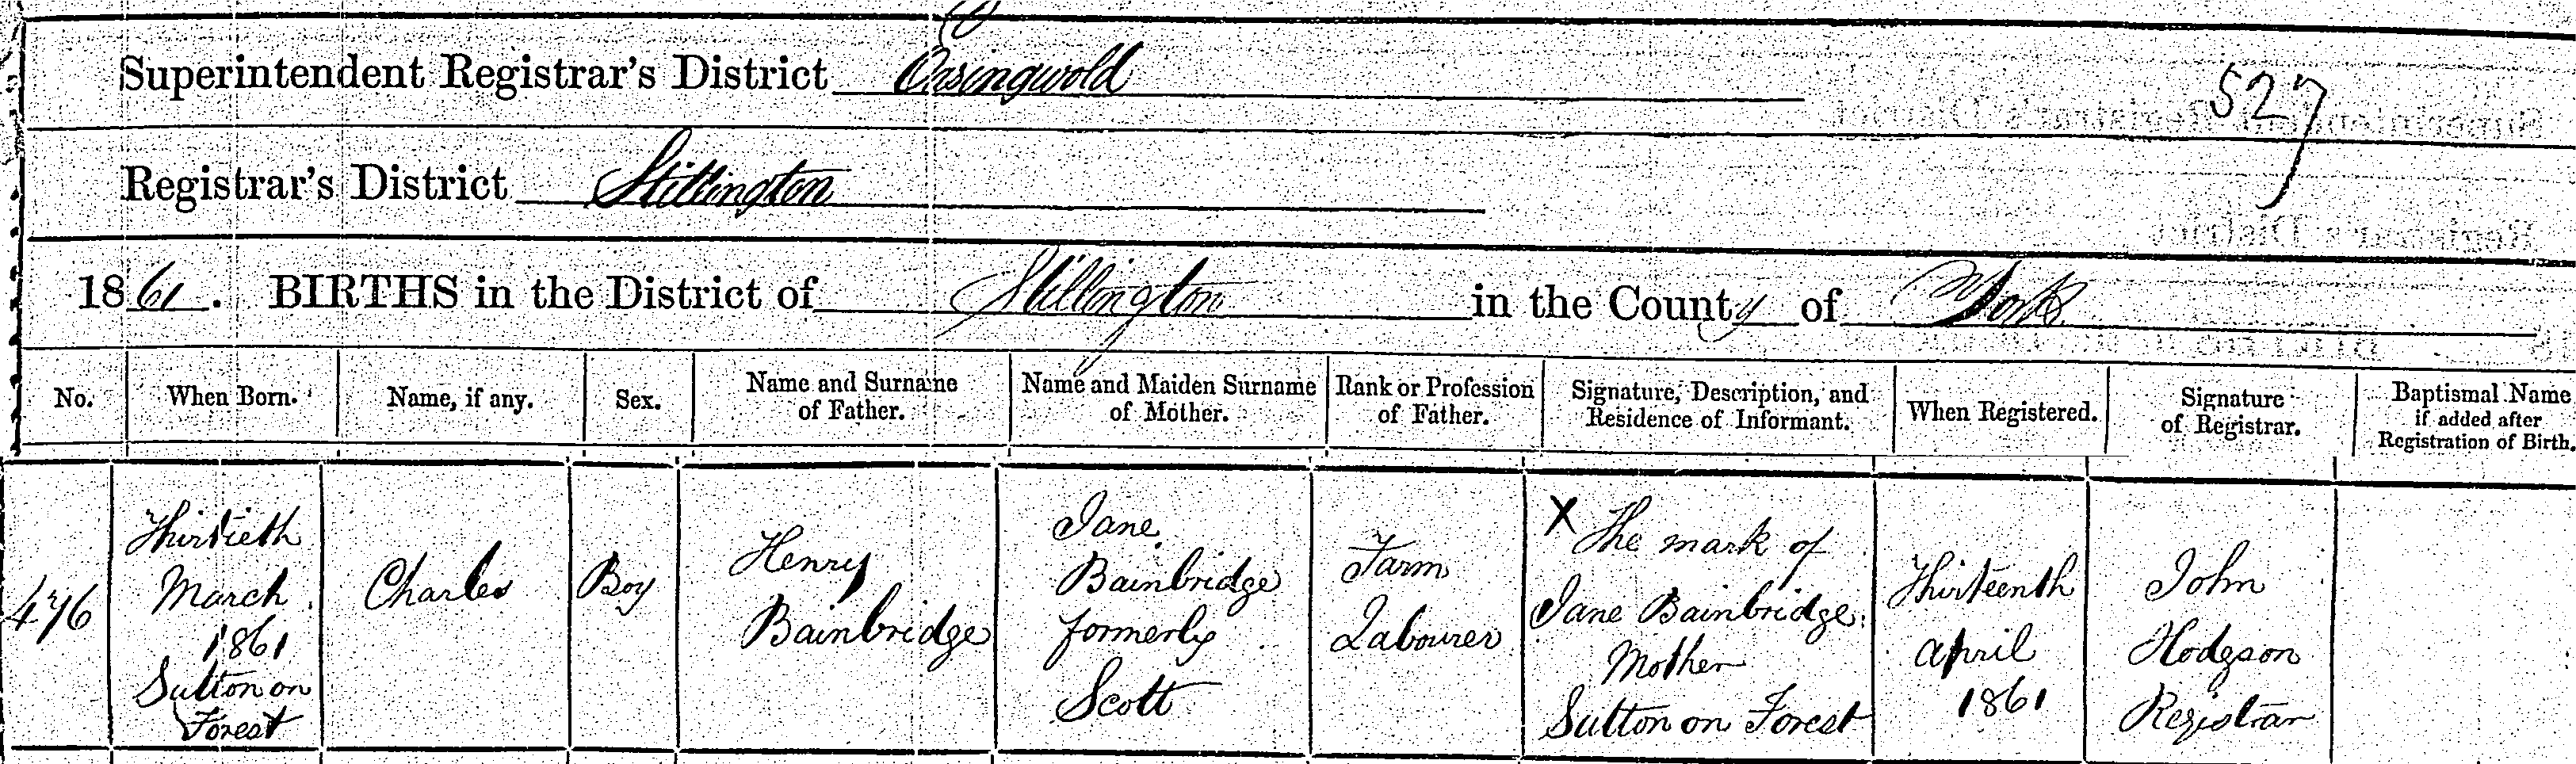 Superintendent Registrar's District Easingwold
527
Registrar's District Stillington
1861. BIRTHS in the District of Stillington in the County of York
No. When Born. Name, if any. Sex. Name and Surname of Father. Name and Maiden Surname of Mother. Rank or Profession of Father. Signature, Description, and Residence of Informant. When Registered. Signature of Registrar. Baptismal Name if added after Registration of Birth.
476
Thirtieth
March
1861
Sutton on
Forest
Charles
Boy
Henry
Bainbridge
Jane
Bainbridge
formerly
Scott
Farm
Labourer
X The mark of
Jane Bainbridge
Mother
Sutton on Forest
Thirteenth
April
1861
John
Hodgson
Registrar